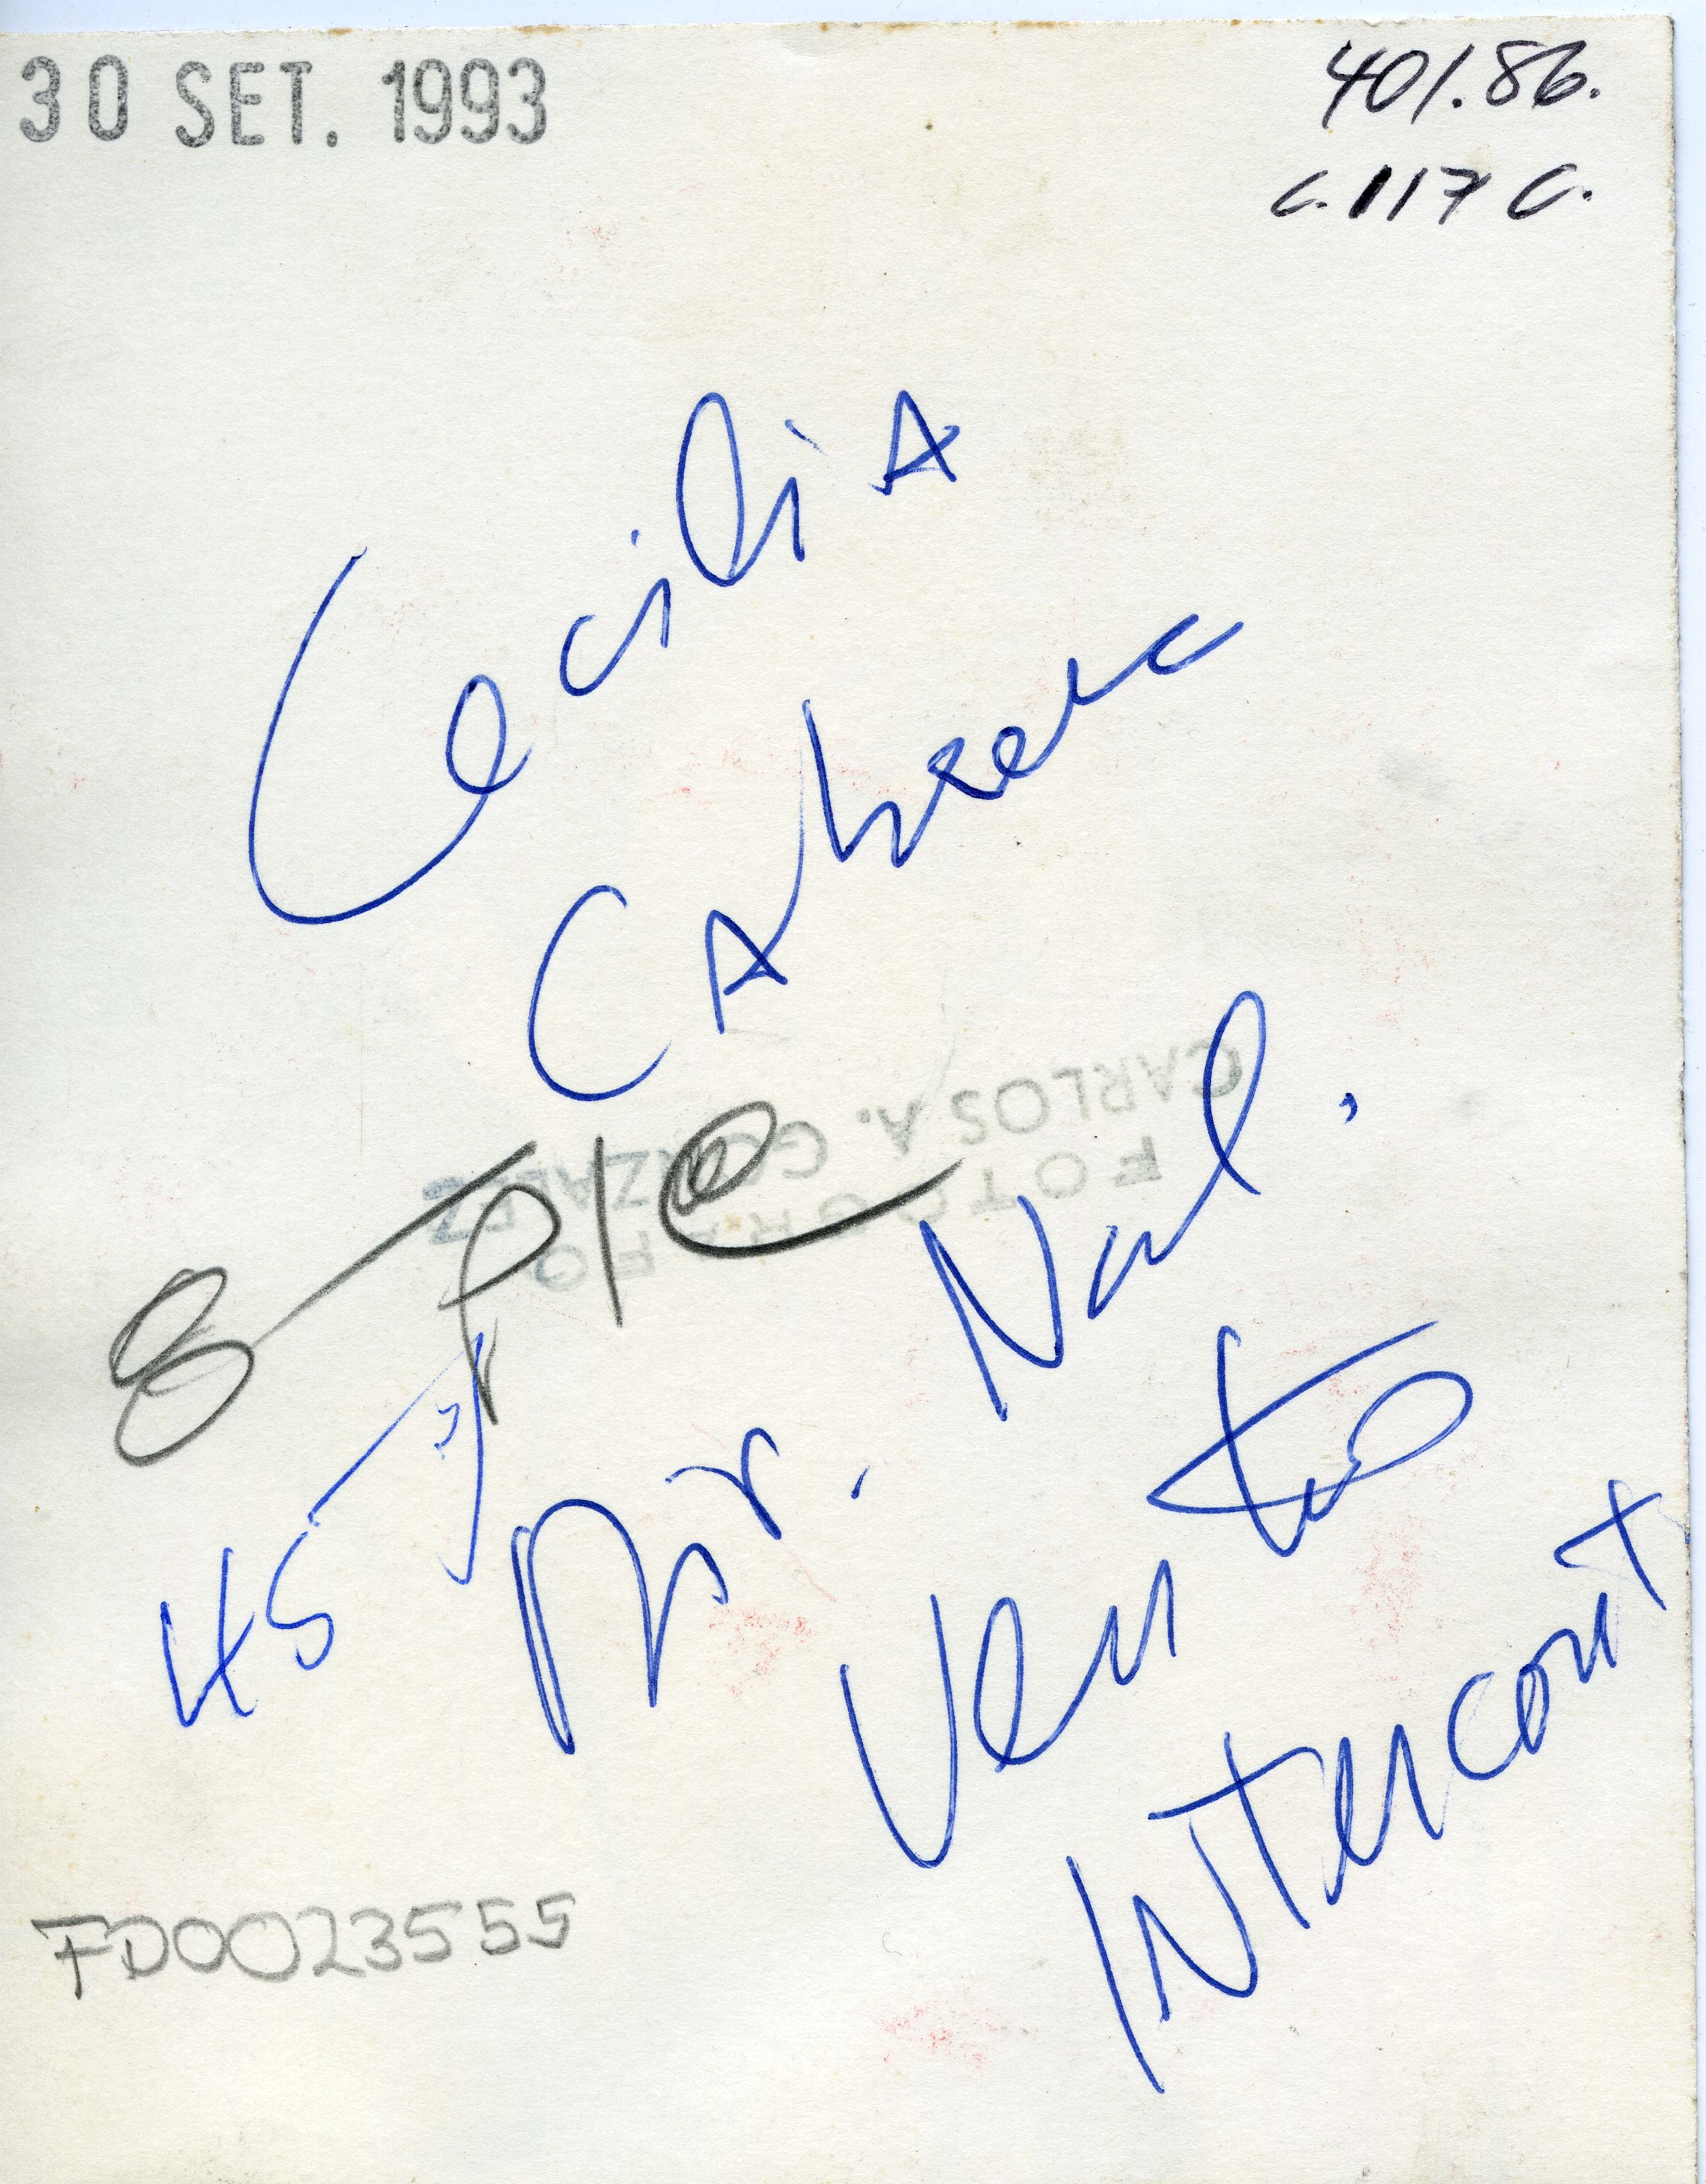 30 SET. 1993
401.86.
C. 117 C.
Cecilia
Cabrera
FOTOGRAFO
CARLOS A. GONZALEZ
Dir. Nal.
Ventas
Intercont
FD0023555